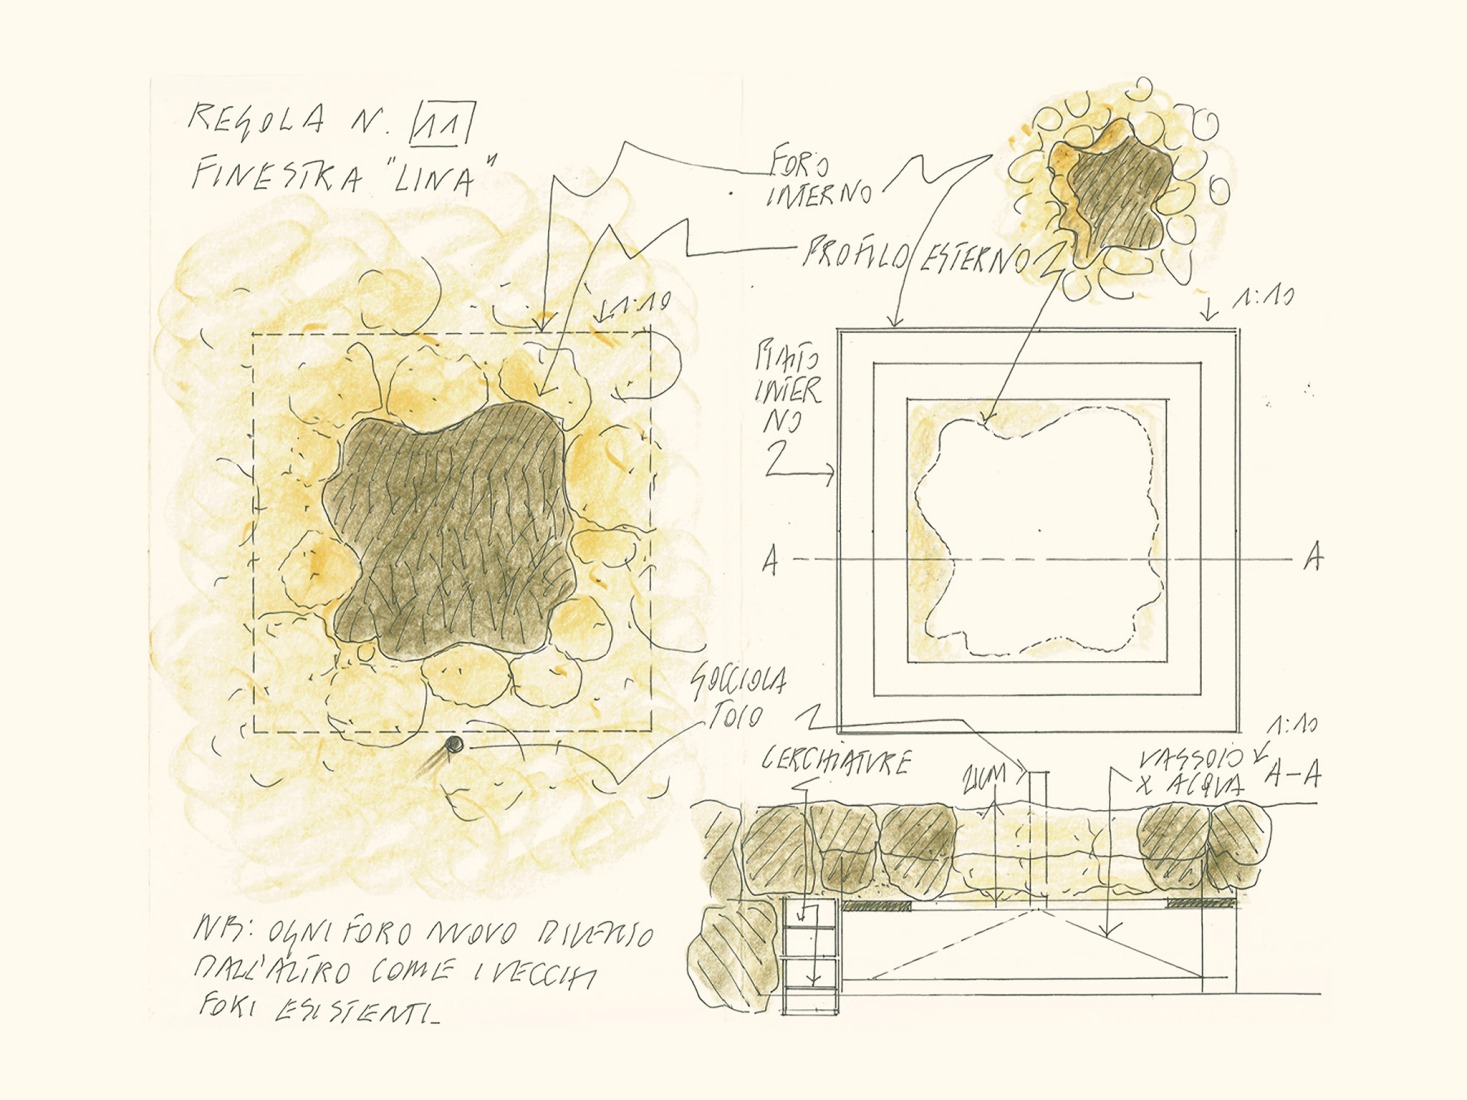 REGOLA N. 11
FINESTRA "LINA"
FORO
INTERNO
PROFILO ESTERNO
1:10
1:10
INTER
NO
A
A
GOCCIOLA
TOIO
CERCHIATURE
VASSOIO
X ACQUA
1:10
A-A
NB: OGNI FORO NUOVO DIVERSO
DALL'ALTRO COME I VECCHI
FORI ESISTENTI_